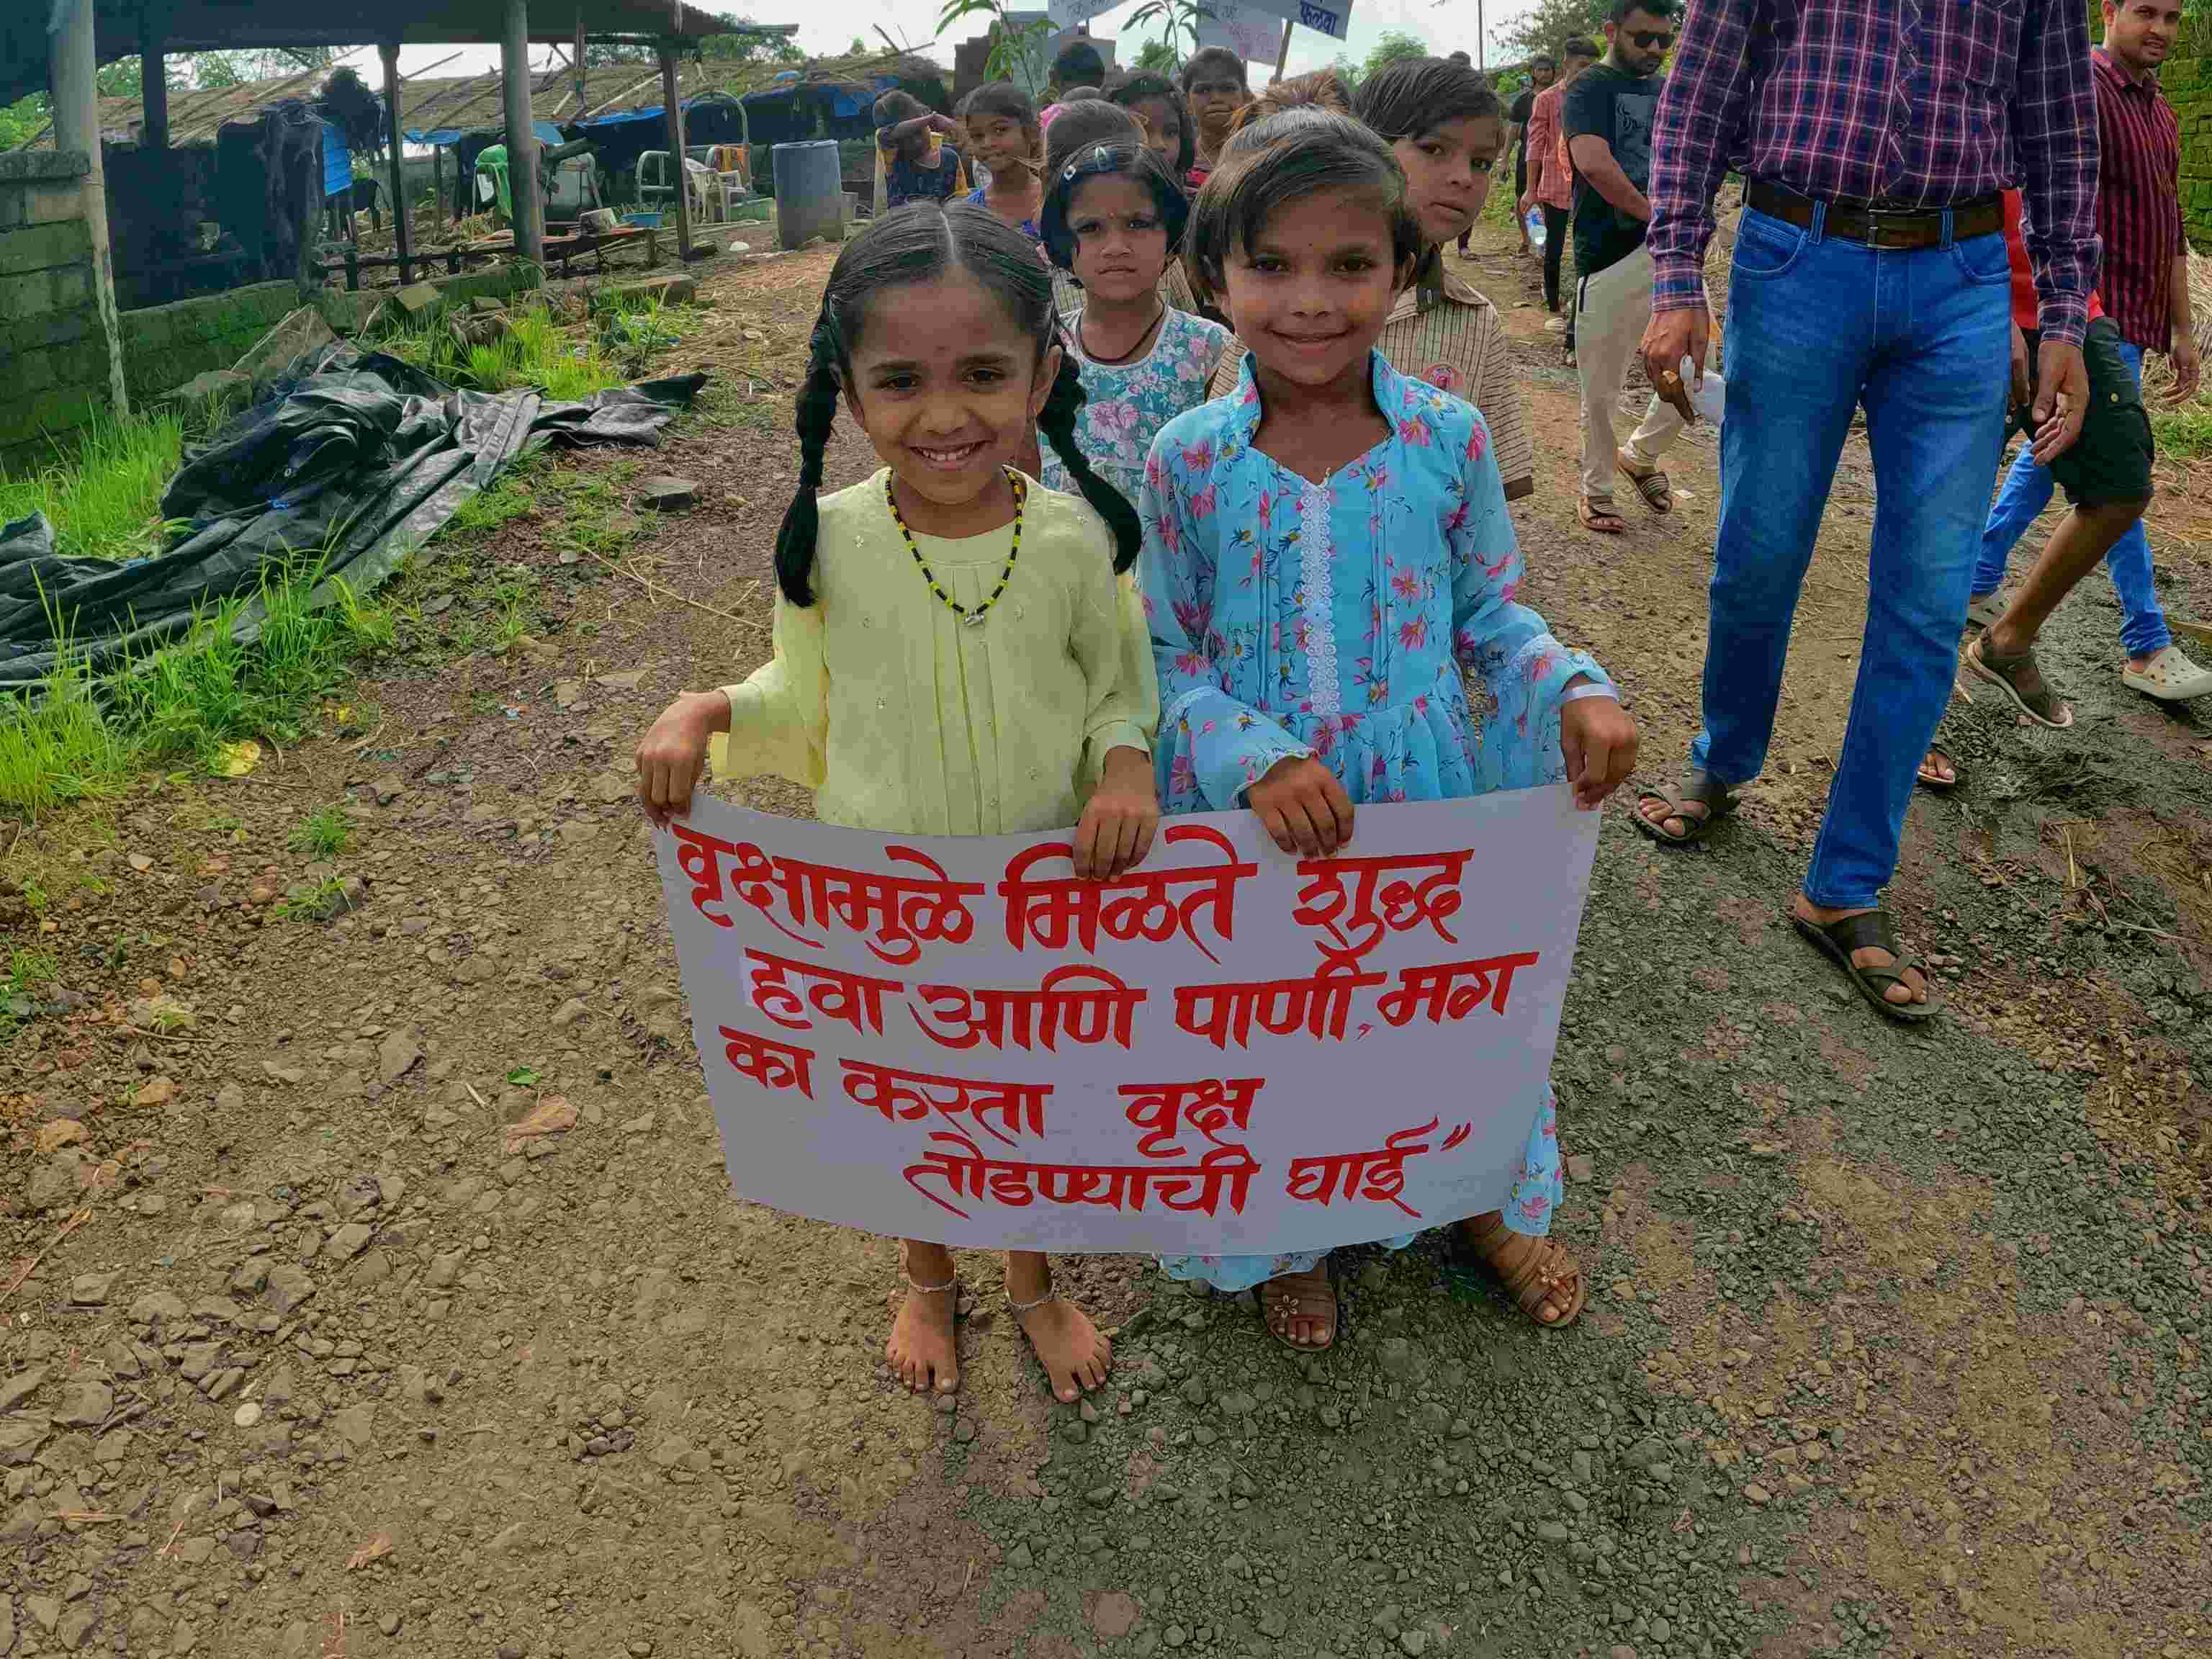 फळवा
वृक्षामुळे मिळते शुद्ध
हवा आणि पाणी, मग
का करता वृक्ष
तोडण्याची घाई"